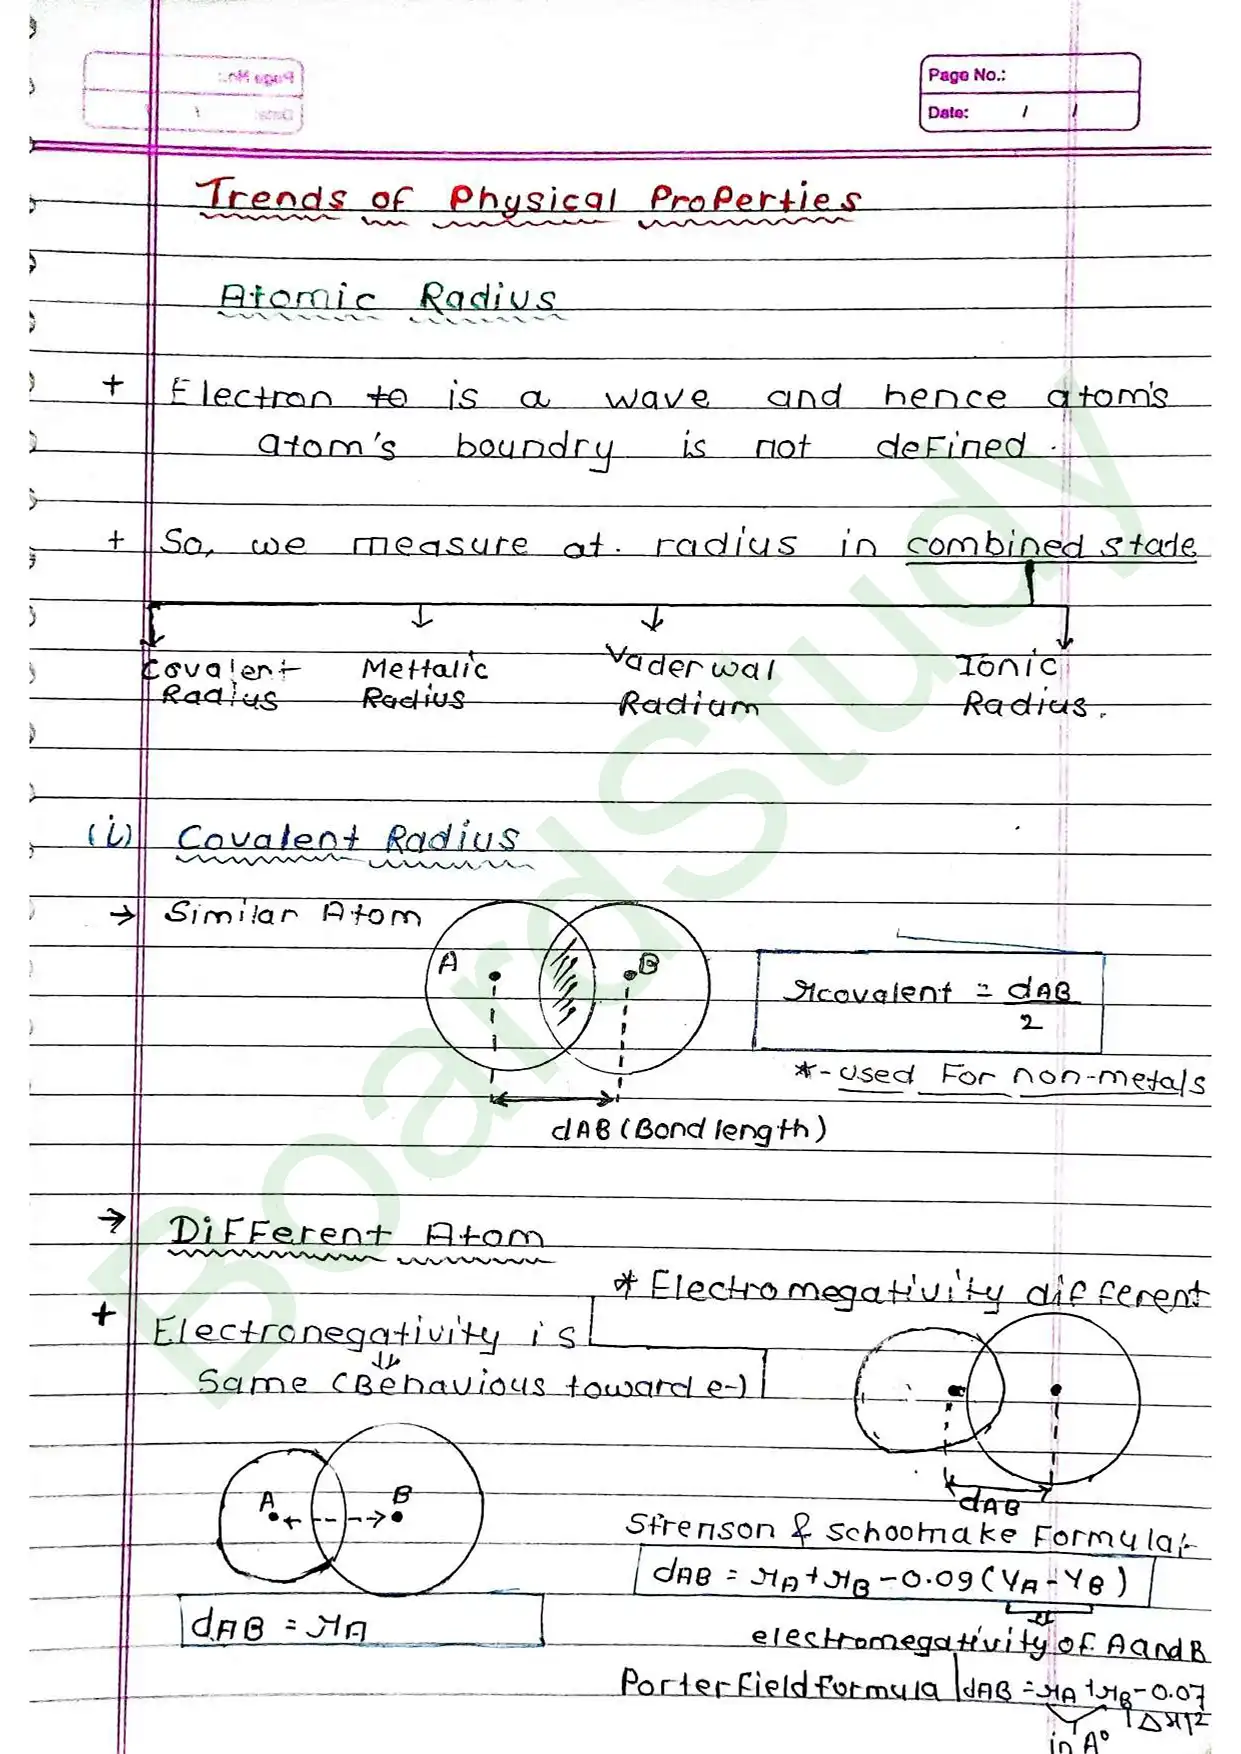 Page No.:
Date: / /
Trends of Physical Properties
Atomic Radius
+ Electron to is a wave and hence atom's
atom's boundry is not defined.
+ So, we measure at. radius in combined state
Covalent Radius
Mettalic Radius
Vaderwal Radium
Ionic Radius.
(i) Covalent Radius
→ Similar Atom
A B
rcovalent = dAB/2
*-used for non-metals
dAB (Bond length)
→ Different Atom
* Electromegativity different
+ Electronegativity is
⇓
Same (Behavious toward e-)
A B
dAB
Strenson & schoomake Formula:-
dAB = rA + rB - 0.09 (YA - YB)
dAB = rA
electromegativity of A and B
Porter Field formula dAB = rA + rB - 0.07
in A°
BoardStudy